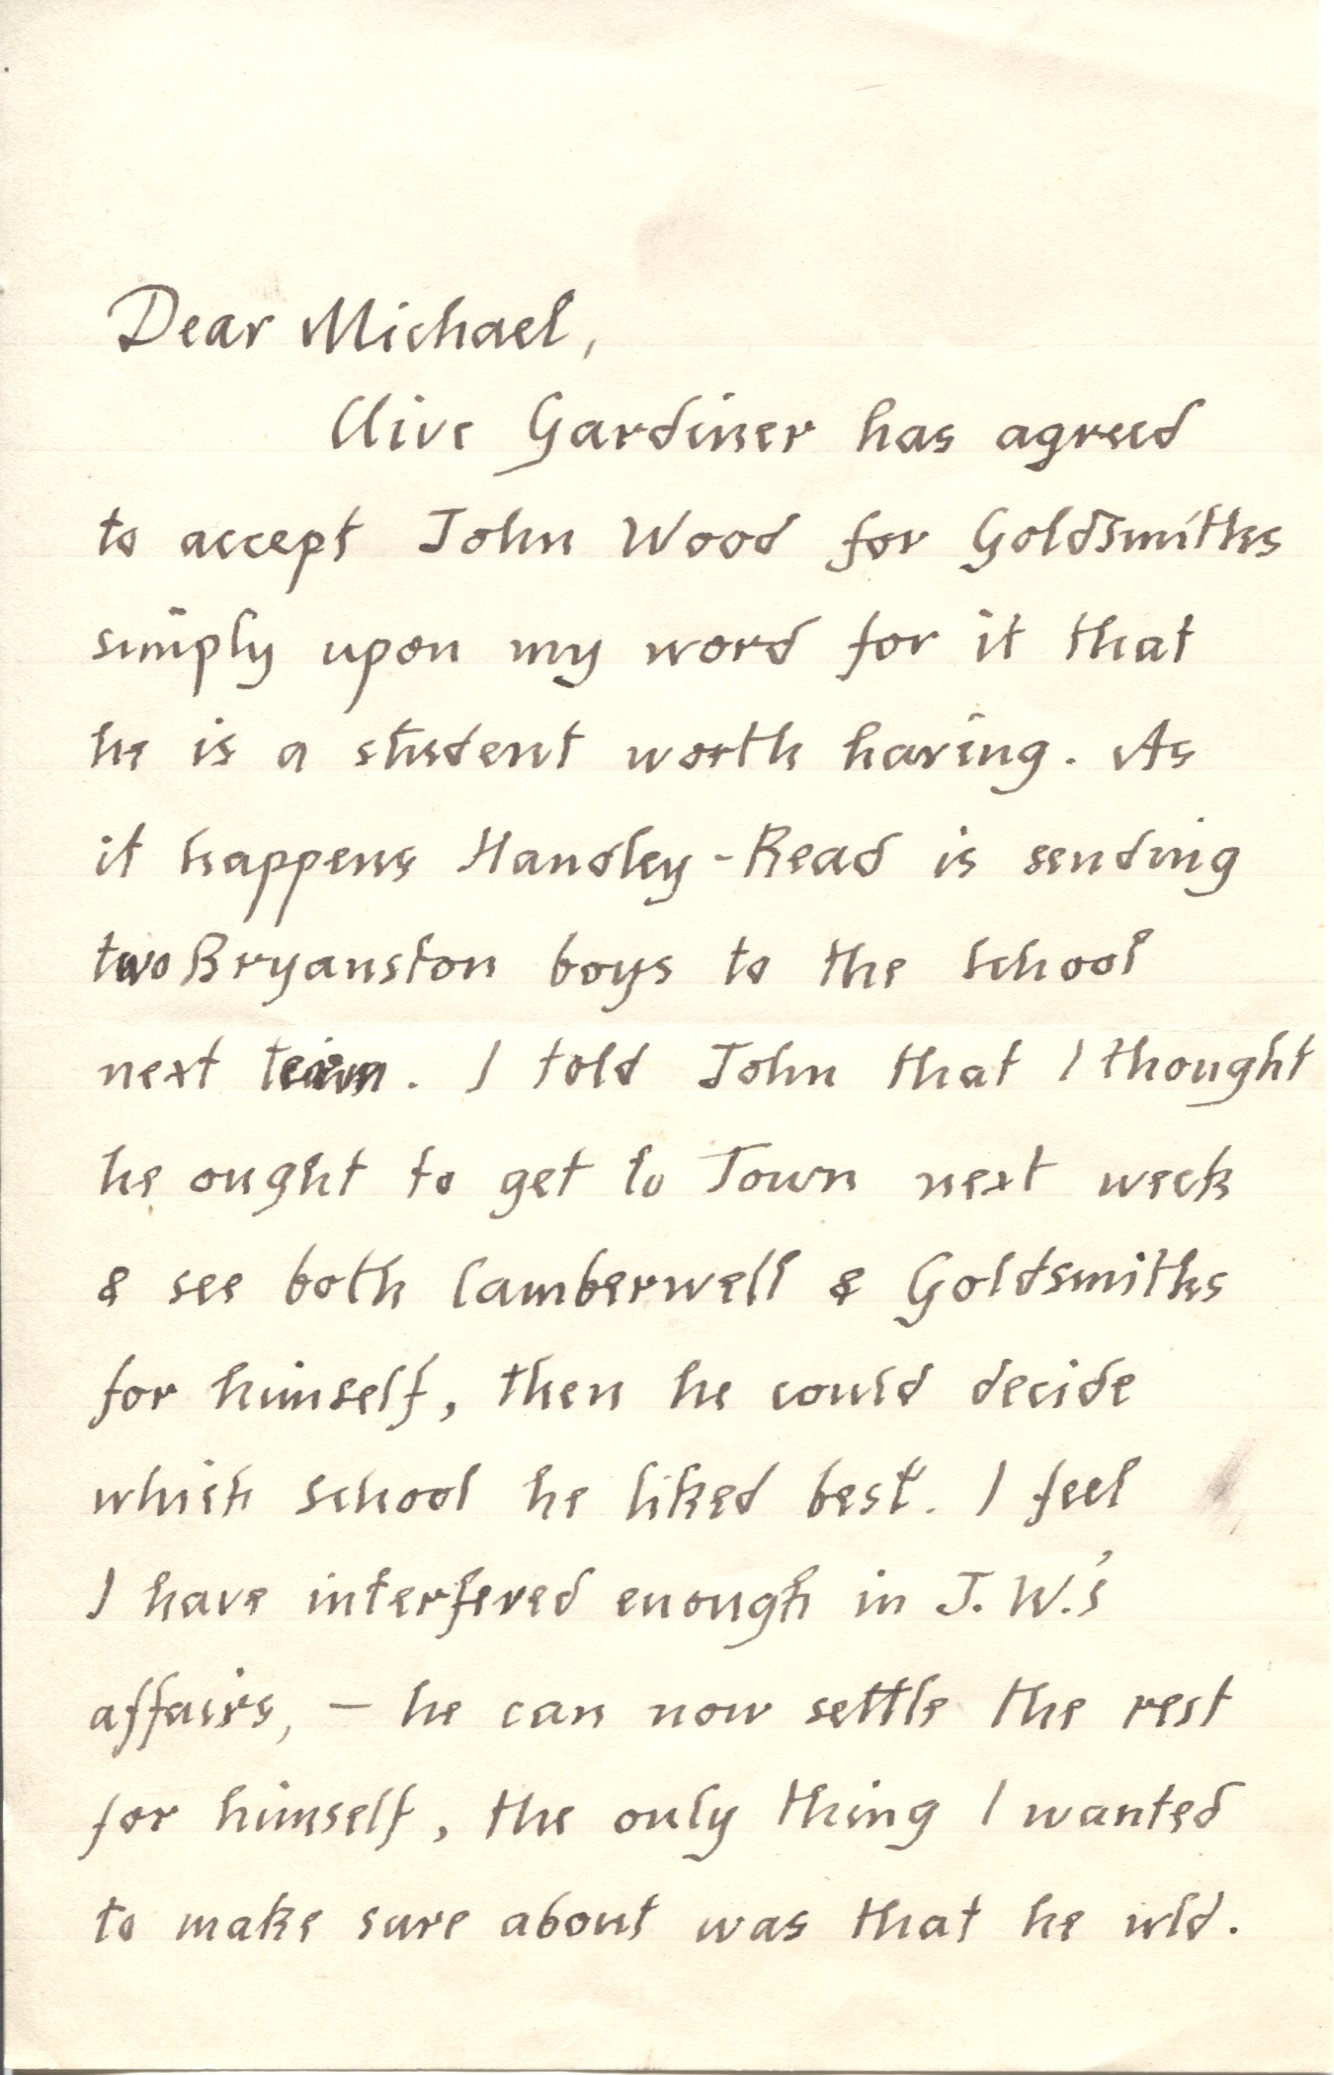 Dear Michael,
Clive Gardiner has agreed
to accept John Wood for Goldsmiths
simply upon my word for it that
he is a student worth having. As
it happens Handley-Read is sending
two Bryanston boys to the school
next term. I told John that I thought
he ought to get to Town next week
& see both Camberwell & Goldsmiths
for himself, then he could decide
which school he liked best. I feel
I have interfered enough in J. W.'s
affairs, – he can now settle the rest
for himself, the only thing I wanted
to make sure about was that he wld.